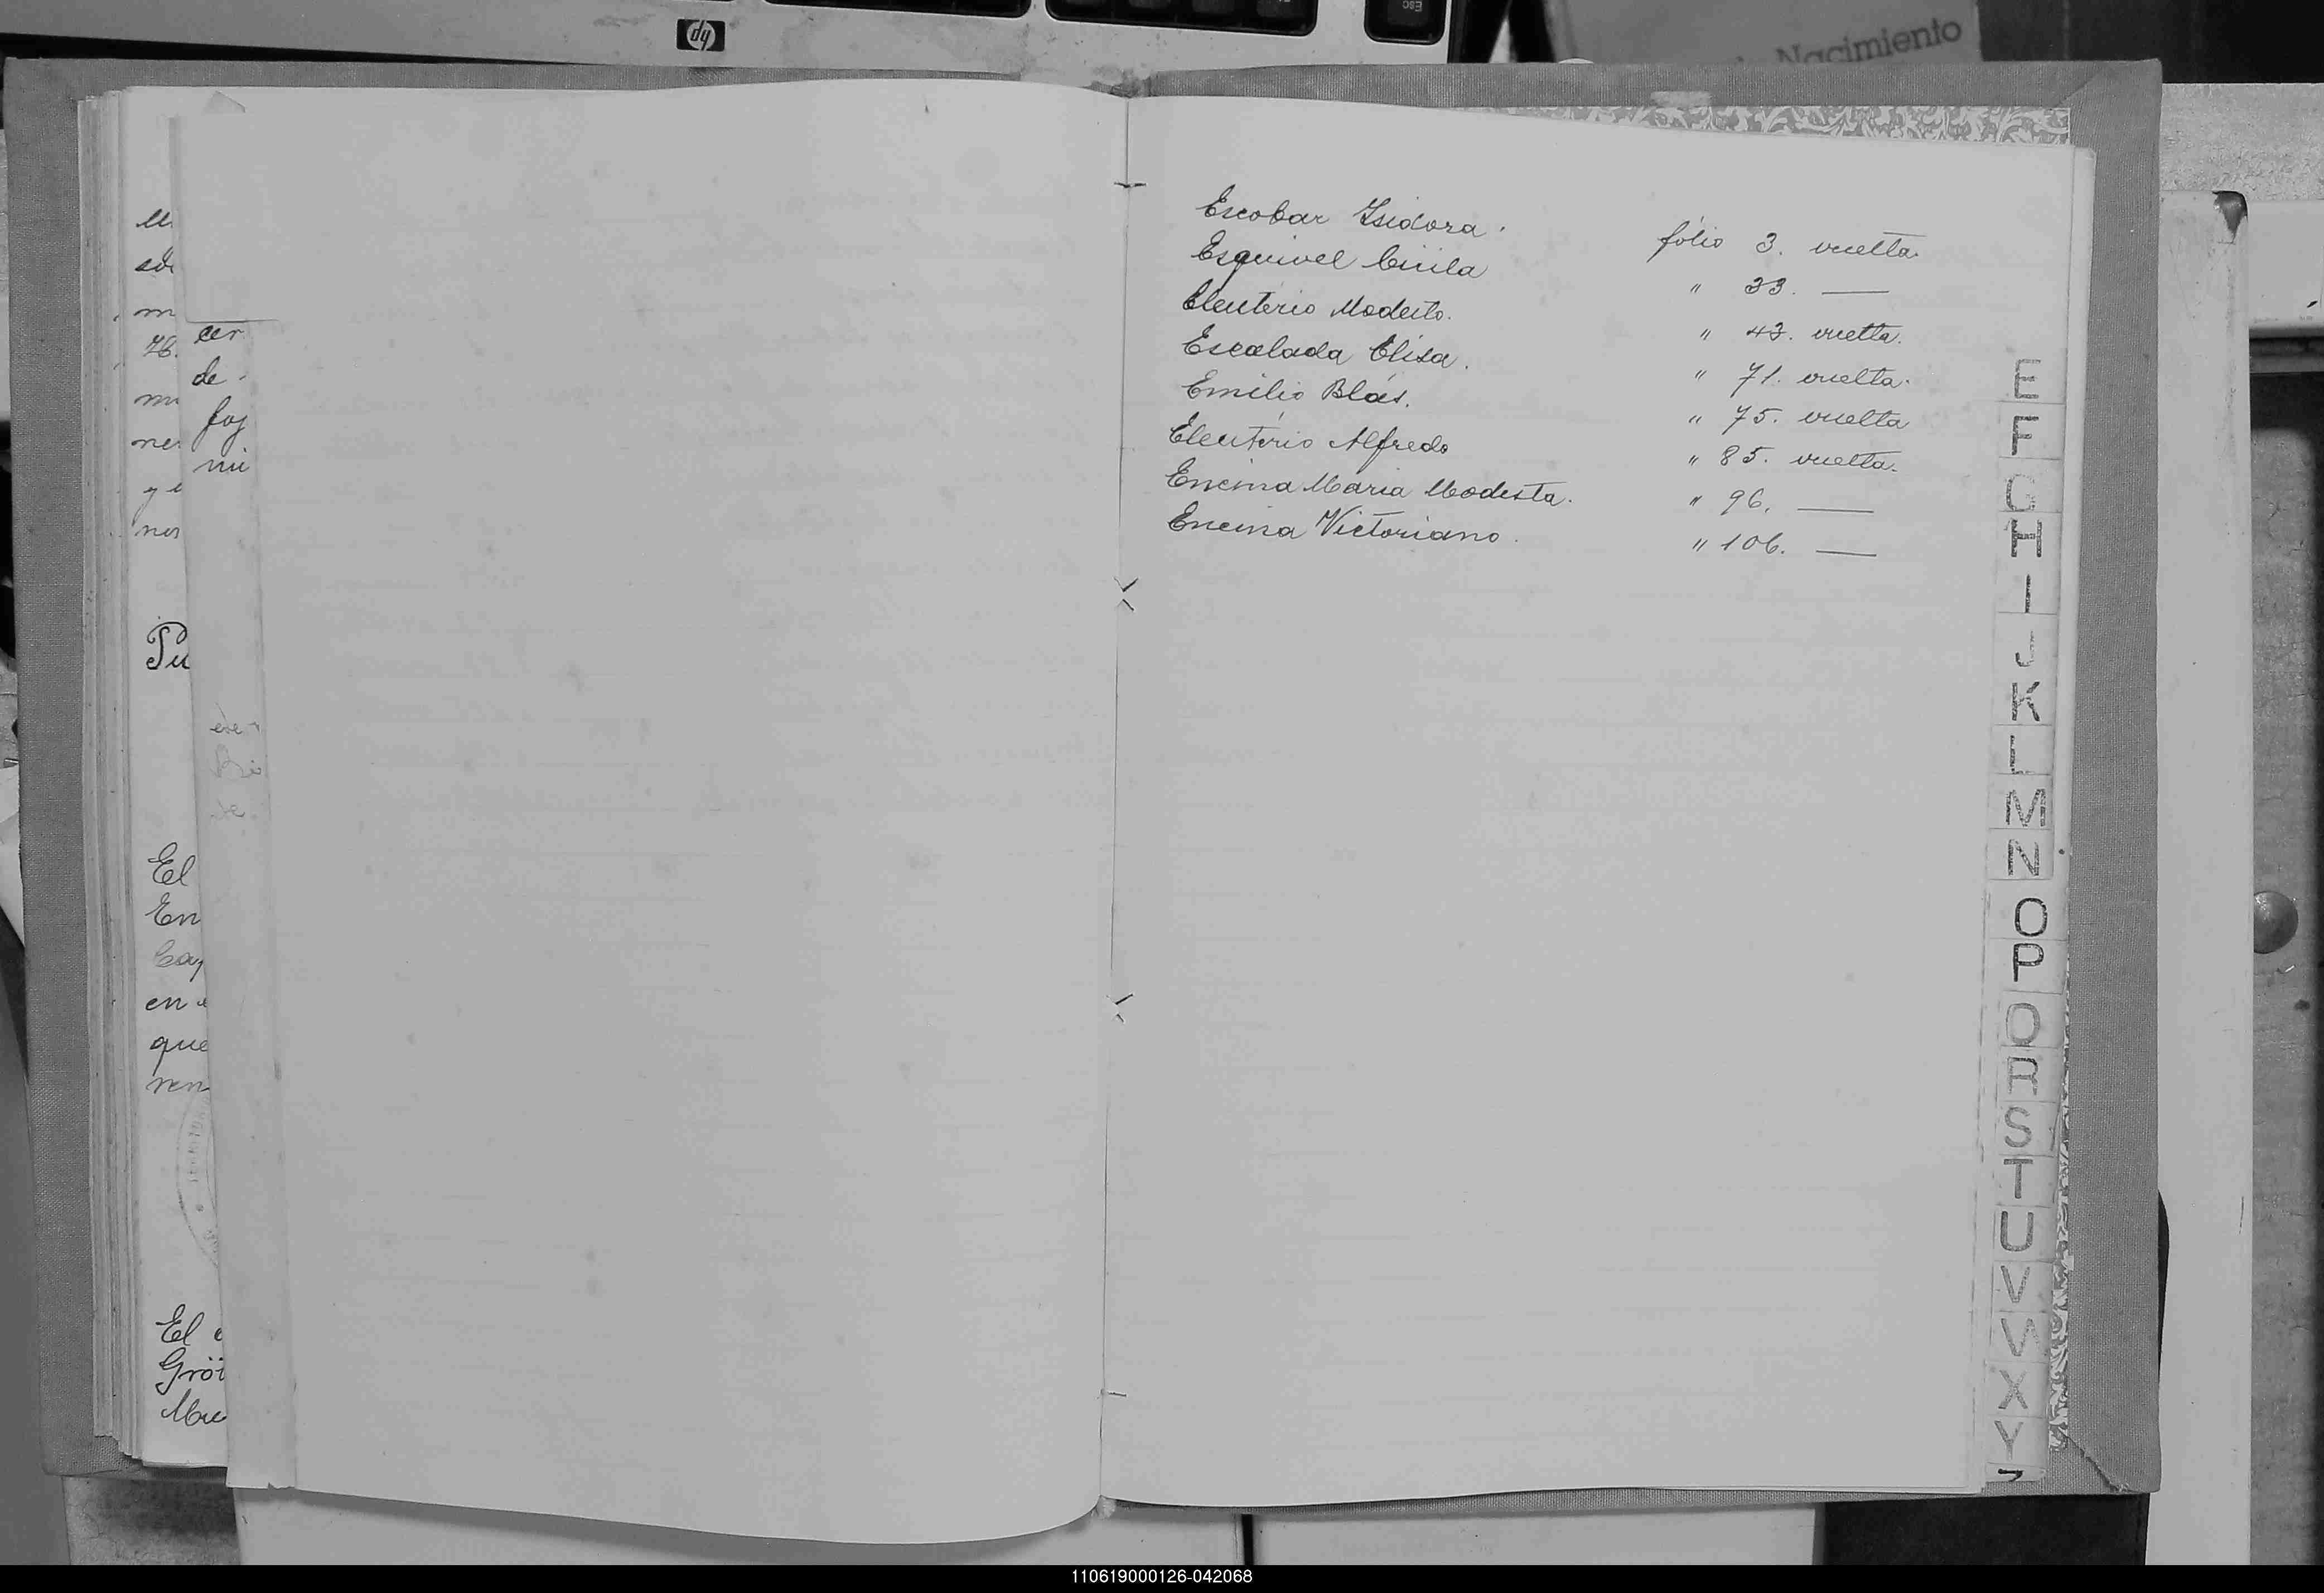 Esc
hp
Nacimiento
Escobar Isidora. folio 3. vuelta.
Esquivel Cirila " 33. —
Eleuterio Modesto. " 43. vuelta.
Escalada Elisa. " 71. vuelta.
Emilio Blás. " 75. vuelta
Eleuterio Alfredo " 85. vuelta.
Encina Maria Modesta. " 96. —
Encina Victoriano. " 106. —
cer
de
mi
Pu
El
En
en
que
El
E
F
G
H
I
J
K
L
M
N
O
P
Q
R
S
T
U
V
W
X
Y
110619000126-042068